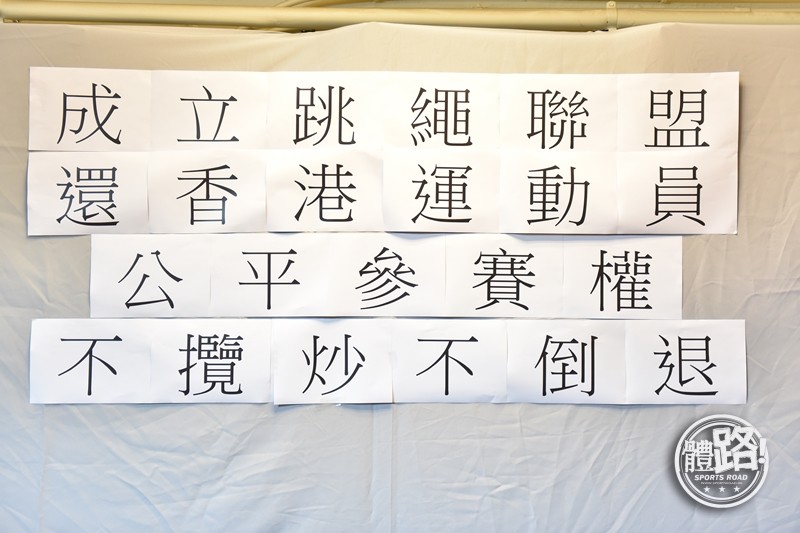 成立跳繩聯盟
還香港運動員
公平參賽權
不攬炒不倒退
體路!
SPORTS ROAD